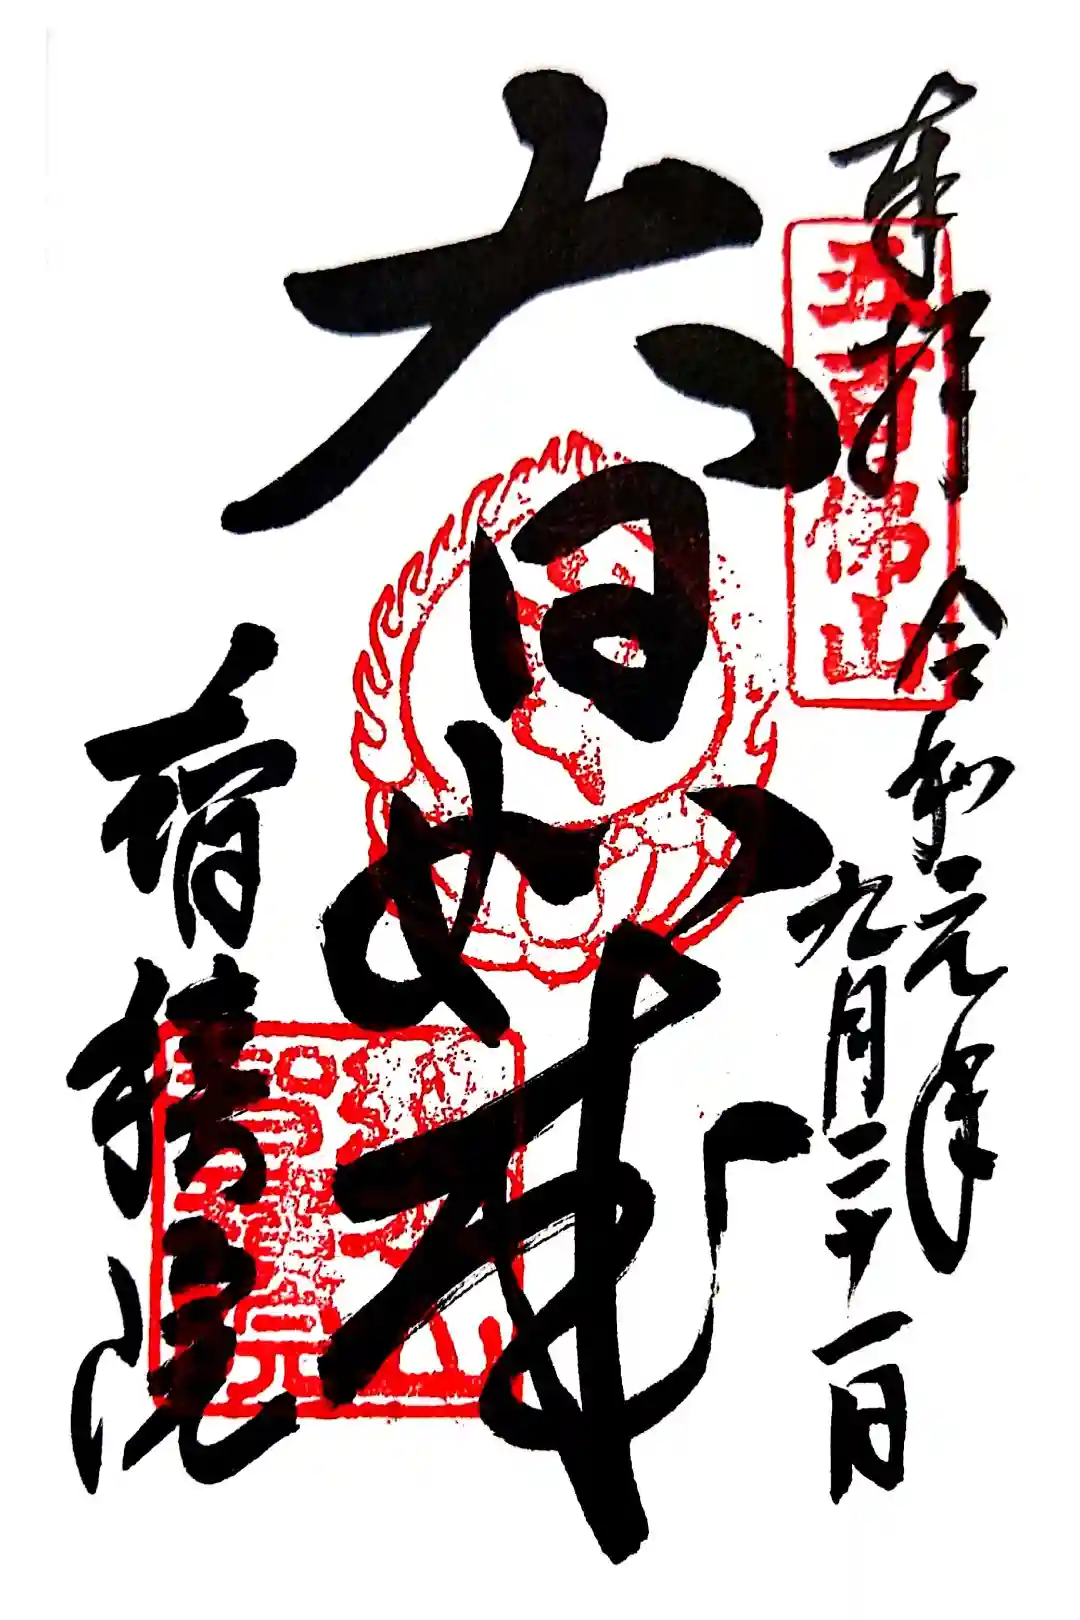 奉拝
五百佛山
令和元年
九月二十一日
大日如来
智積院